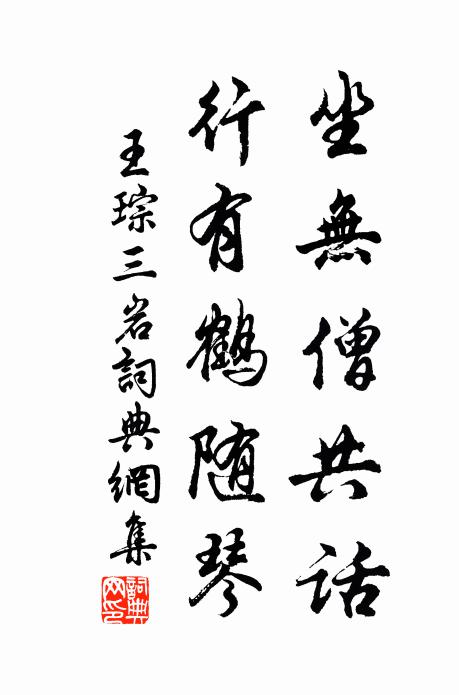 坐無僧共話
行有鶴随琴
王琮三岩詞典網集
詞典網印